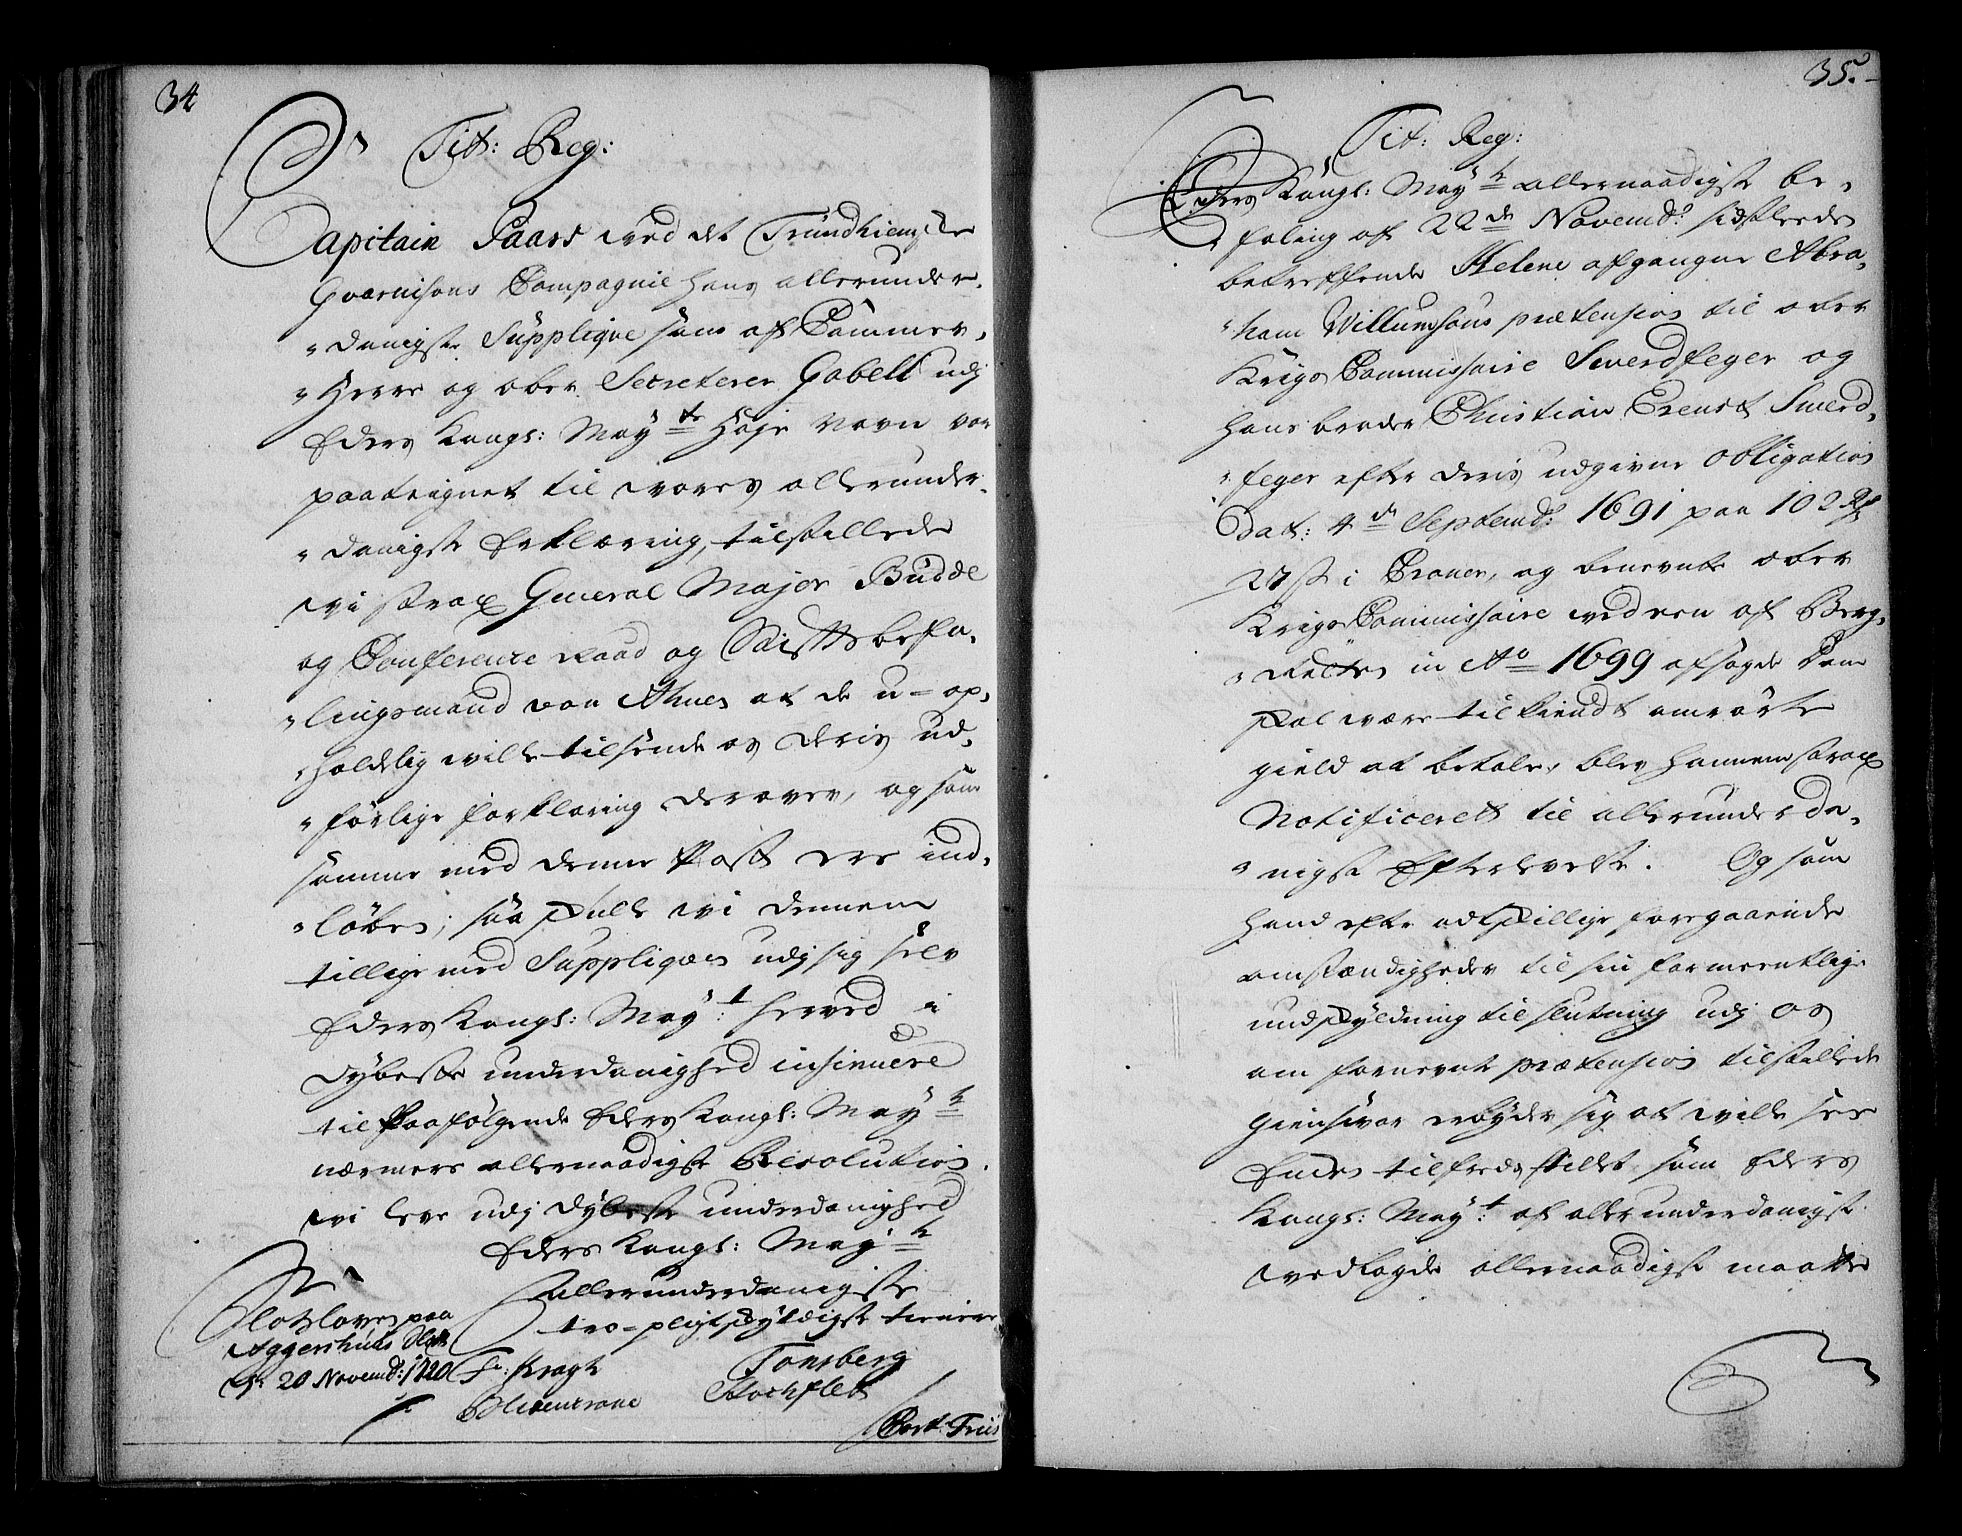 34
Tit: Reg:
Capitain Paars ved det Tründhiemske
Gvarnisons Compagnie hans allerunder-
danigste Süpplique som af Cammer-
Herre og ober Secreterer Gabell udj
Eders Kongl: May.ts Høje Navn var
paateignet til vores allerunder-
danigste Erklæring, tilstillede
wi strax General Major Büdde
og Conference Raad og Stiftsbefa-
lingsmand von Ahnen at de u-op-
holdelig wille tilsende os deris ud-
förlige forklaring derover, og som
samme med denne Post ere ind-
löben; saa skulle wi dennem
tillige med Suppliqven udj sig selv
Eders Kongl: May:t herved i
dybeste underdanighed insinuere
til Paafölgende Eders Kongl: May.ts
nærmere allernaadigste Resolution.
wi leve udj dybeste underdanighed
Eders Kongl: May.ts
allerunderdanigste
troe-pligtskyldigste tienere
Slotsloven paa
Aggershuus Slott
d. 20 Novemb: 1720
Fr: Kragh Tonsberg
Blixencrone Stochflet
Bart: Friis
35.
Tit: Reg:
Eders Kongl: May.ts allernaadigste be-
faling af 22de Novembr sidstleden
betreffende Helene afgangne Abra-
ham Willumsons prætension til ober
Krigs Commissaire Swerdfeger og
hans broder Christian Ernst Swerd-
feger efter deris udgivne obligation
Dat: 4de Septemb: 1691 paa 102 Rd
27 s i Croner, og benevnte ober
Krigs Commissaire ved een af Berg-
Retten in Ao 1699 afsagde Dom
skal være tilkiendt omrörte
gield at betale, blev hannem strax
Notificerett til allerunderda-
nigst Efterlevelse. Og som
hand efter adskillige foregaaende
omstændigheder til sin formeentlige
undskyldning til slutning udj os
om fornevnte prætension tilstillede
giensvar erbyder sig at wille see
Enken tilfredsstillet som Eders
Kongl: May:t af allerunderdanigst
vedlagde allernaadigst maatte